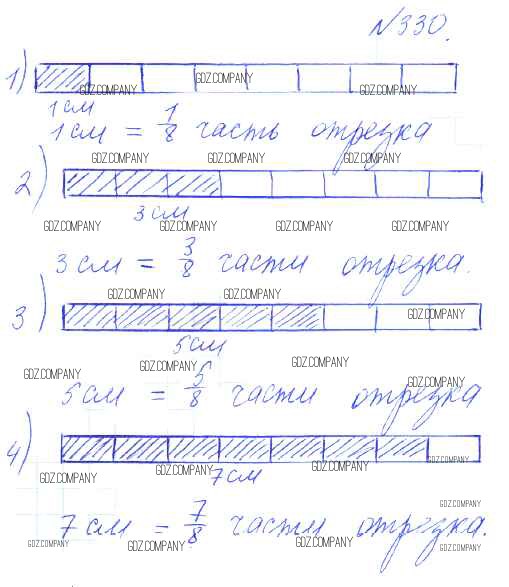 №330.
1)
GDZ.COMPANY
GDZ.COMPANY GDZ.COMPANY
1 см
1 см = 1/8 часть отрезка
GDZ.COMPANY GDZ.COMPANY GDZ.COMPANY
2)
3 см
GDZ.COMPANY GDZ.COMPANY GDZ.COMPANY GDZ.COMPANY
3 см = 3/8 части отрезка.
GDZ.COMPANY GDZ.COMPANY
3)
GDZ.COMPANY
5 см
GDZ.COMPANY GDZ.COMPANY GDZ.COMPANY
GDZ.COMPANY
5 см = 5/8 части отрезка
4)
GDZ.COMPANY
GDZ.COMPANY GDZ.COMPANY GDZ.COMPANY
7 см
GDZ.COMPANY
7 см = 7/8 части отрезка.
GDZ.COMPANY GDZ.COMPANY GDZ.COMPANY GDZ.COMPANY